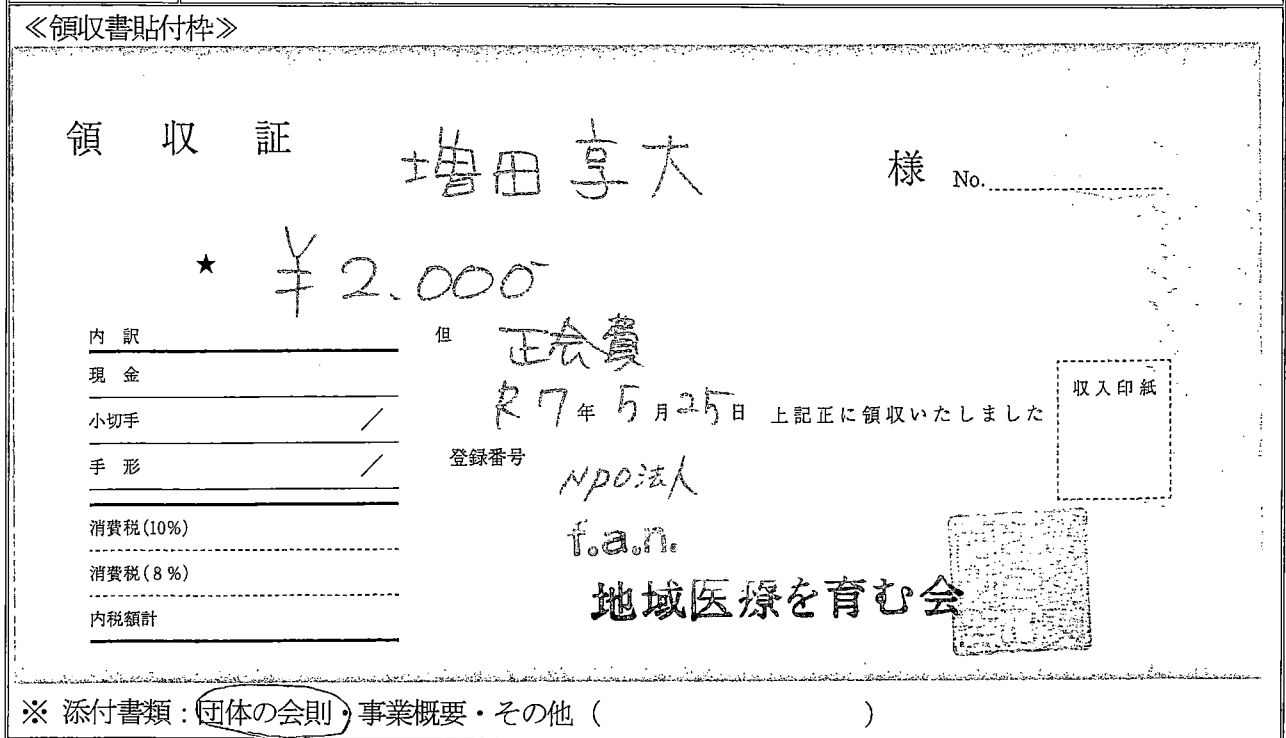 ≪領収書貼付枠≫
領 収 証 増田享大 様 No.
★ ¥2.000
内 訳
現 金
小切手 /
手 形 /
消費税(10%)
消費税(8%)
内税額計
但 正会費
R7年5月25日 上記正に領収いたしました
登録番号
NPO法人
f.a.n.
地域医療を育む会
収入印紙
※ 添付書類:団体の会則・事業概要・その他 ( )